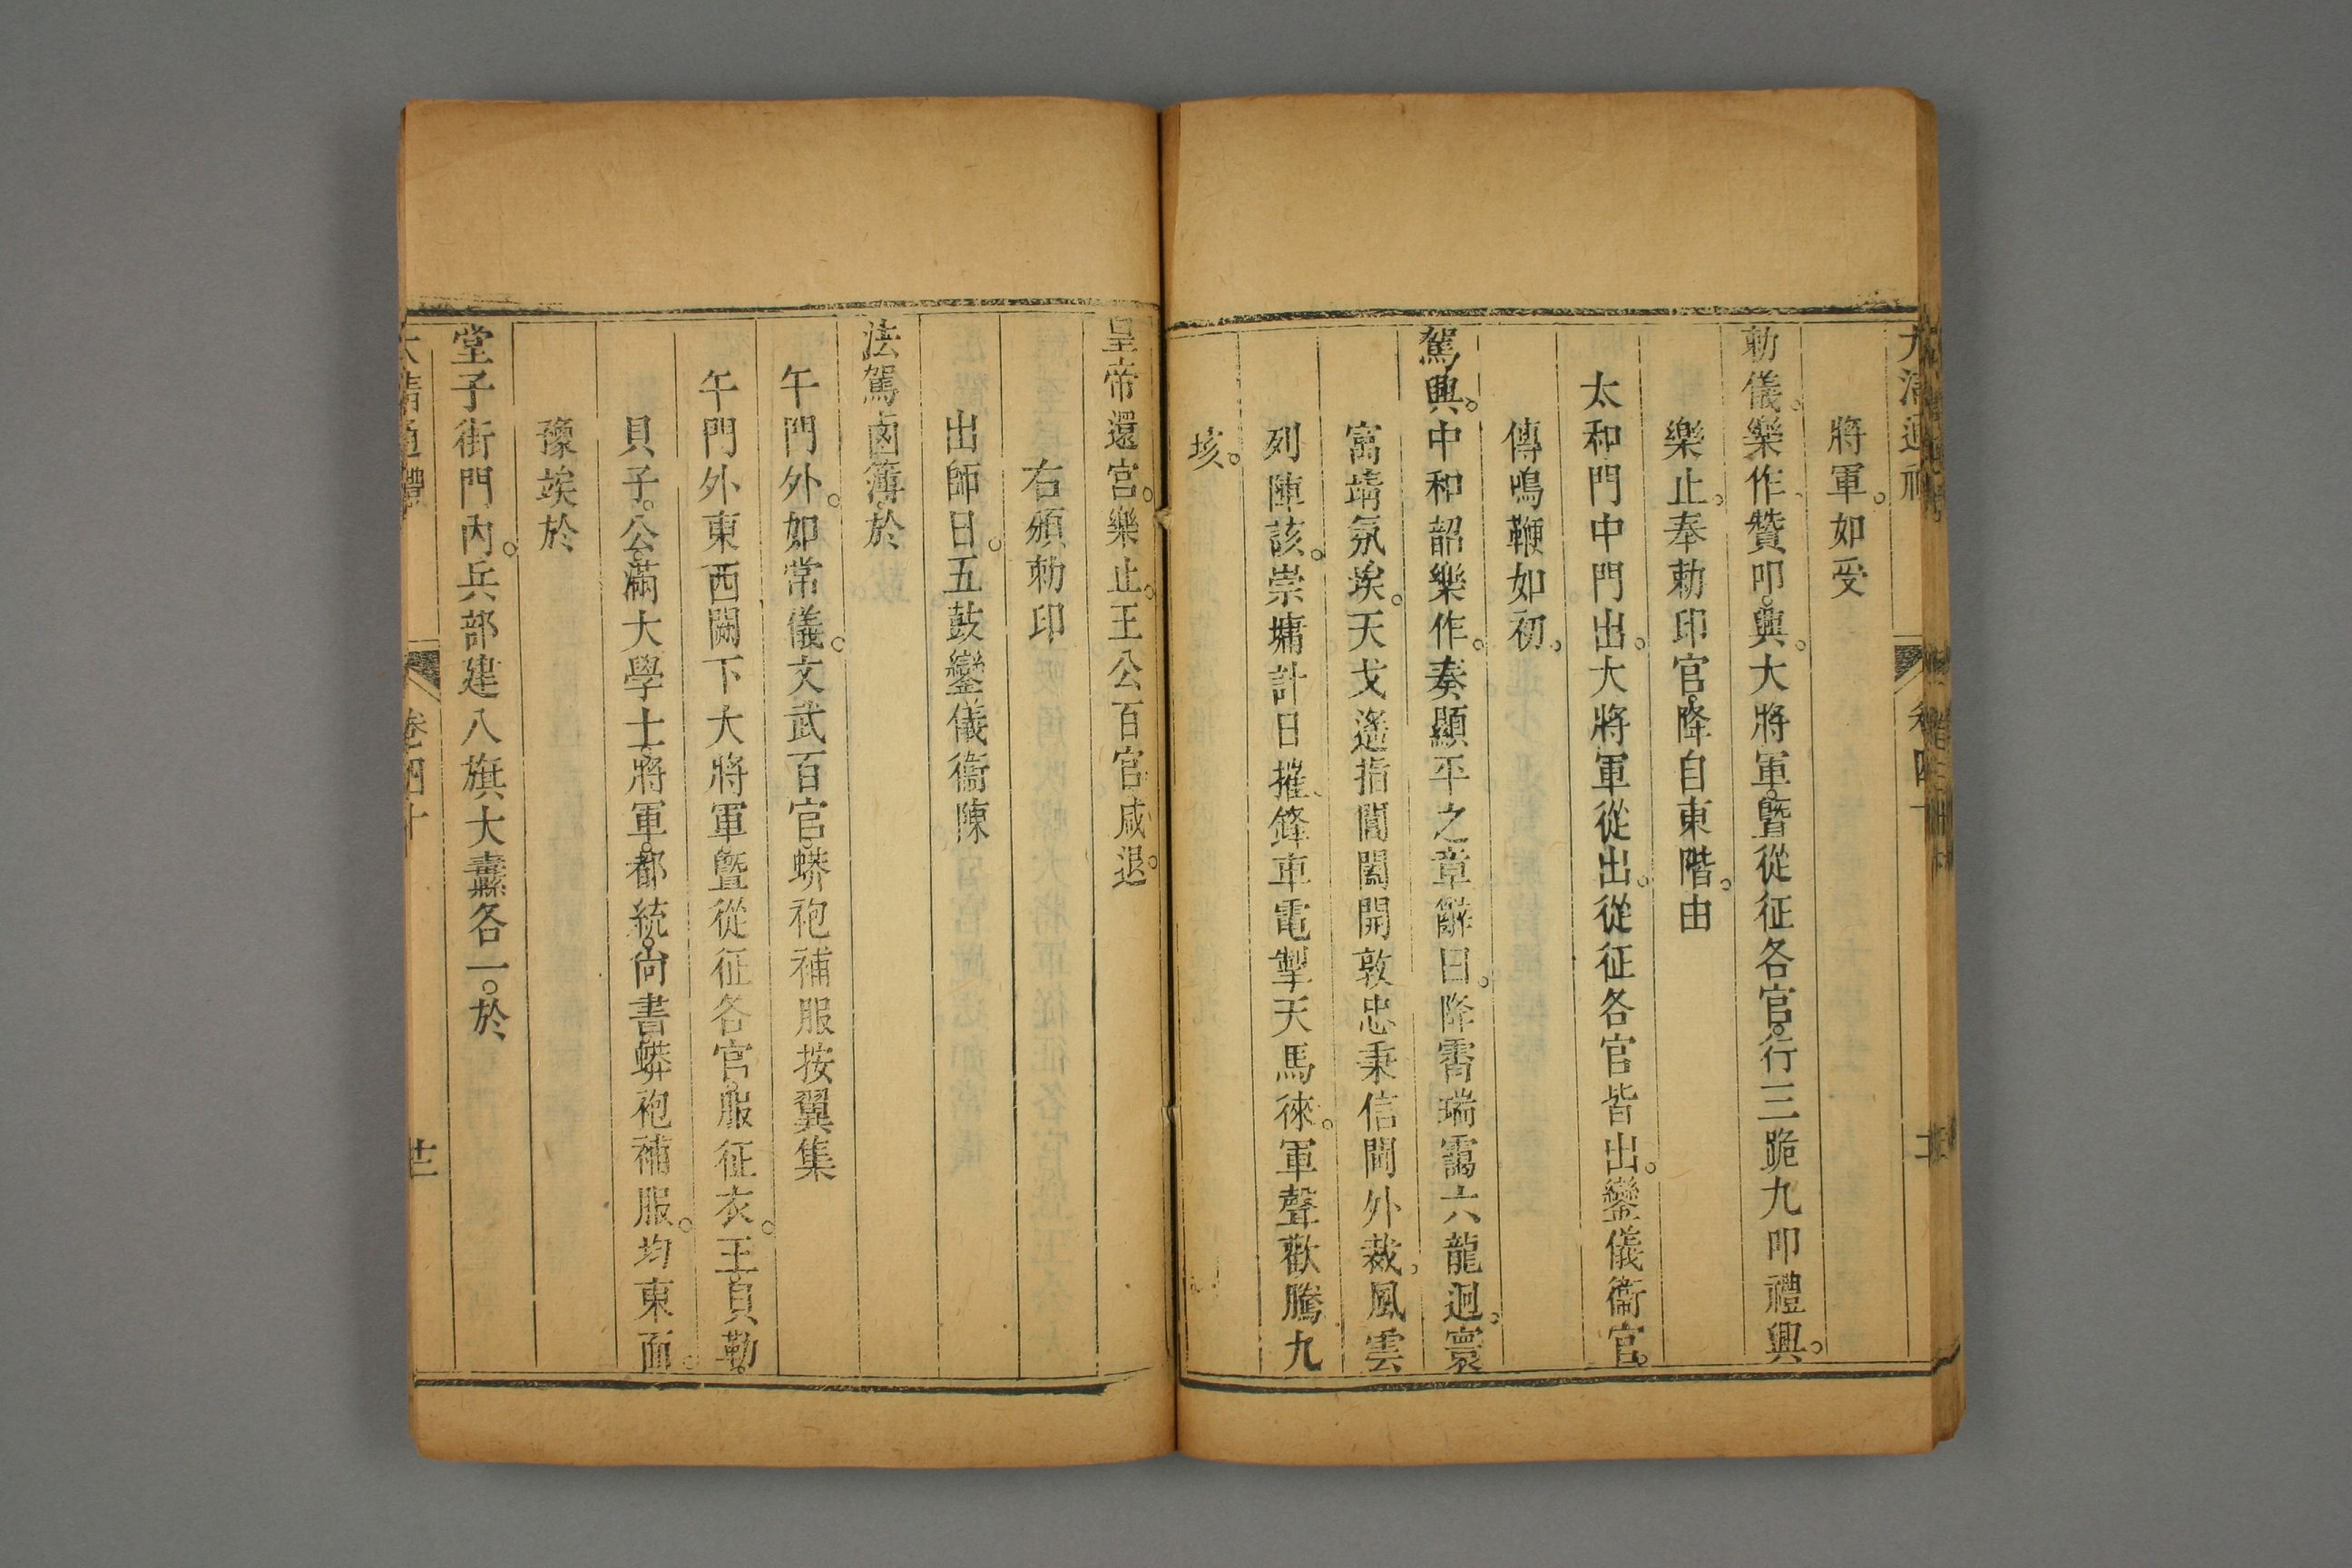 大清通禮 卷四十
將軍。如受
勅儀。樂作。贊叩。興。大將軍。曁從征各官。行三跪九叩禮興。
樂止。奉勅印官。降自東階。由
太和門中門出。大將軍從出。從征各官皆出。鑾儀衞官。
傳鳴鞭如初。
駕興。中和韶樂作。奏顯平之章。辭曰。降霄瑞靄六龍迴。寰
寓靖氛埃。天戈遙指閶闔開。敦忠秉信閫外裁。風雲
列陣該。崇墉計日摧。鋒車電掣天馬徠。軍聲歡騰九
垓。
皇帝還宮。樂止。王公百官咸退。
右頒勅印
出師日。五鼓鑾儀衞陳
法駕鹵簿。於
午門外。如常儀。文武百官。蟒袍補服按翼集
午門外東西闕下大將軍曁從征各官。服征衣。王。貝勒。
貝子。公。滿大學士。將軍。都統。尚書。蟒袍補服。均東面。
豫竢於
堂子街門內。兵部建八旗大纛各一。於
大清通禮 卷四十